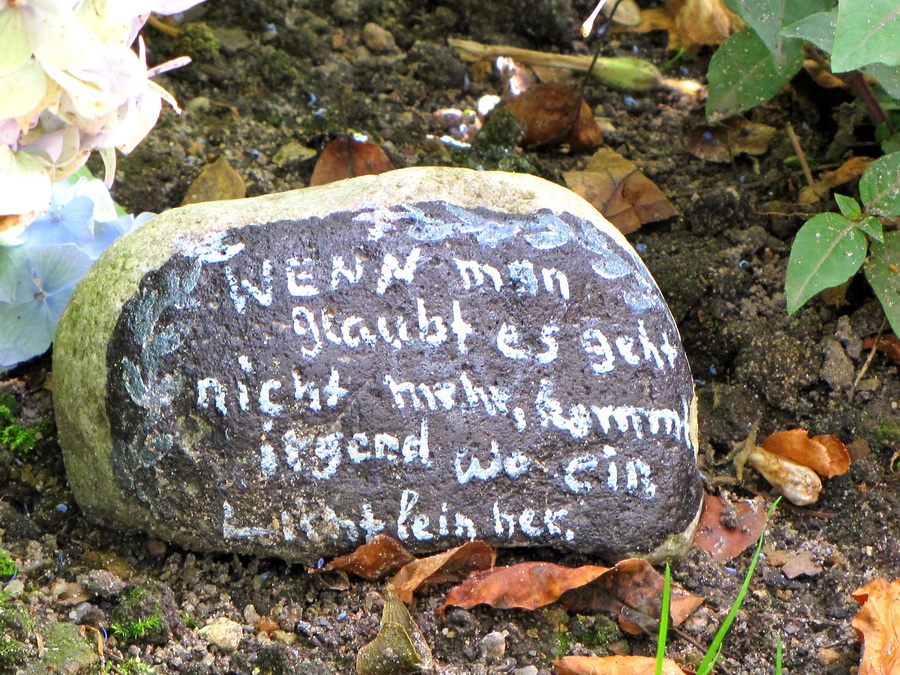 WENN man
glaubt es geht
nicht mehr, kommt
irgend wo ein
Lichtlein her